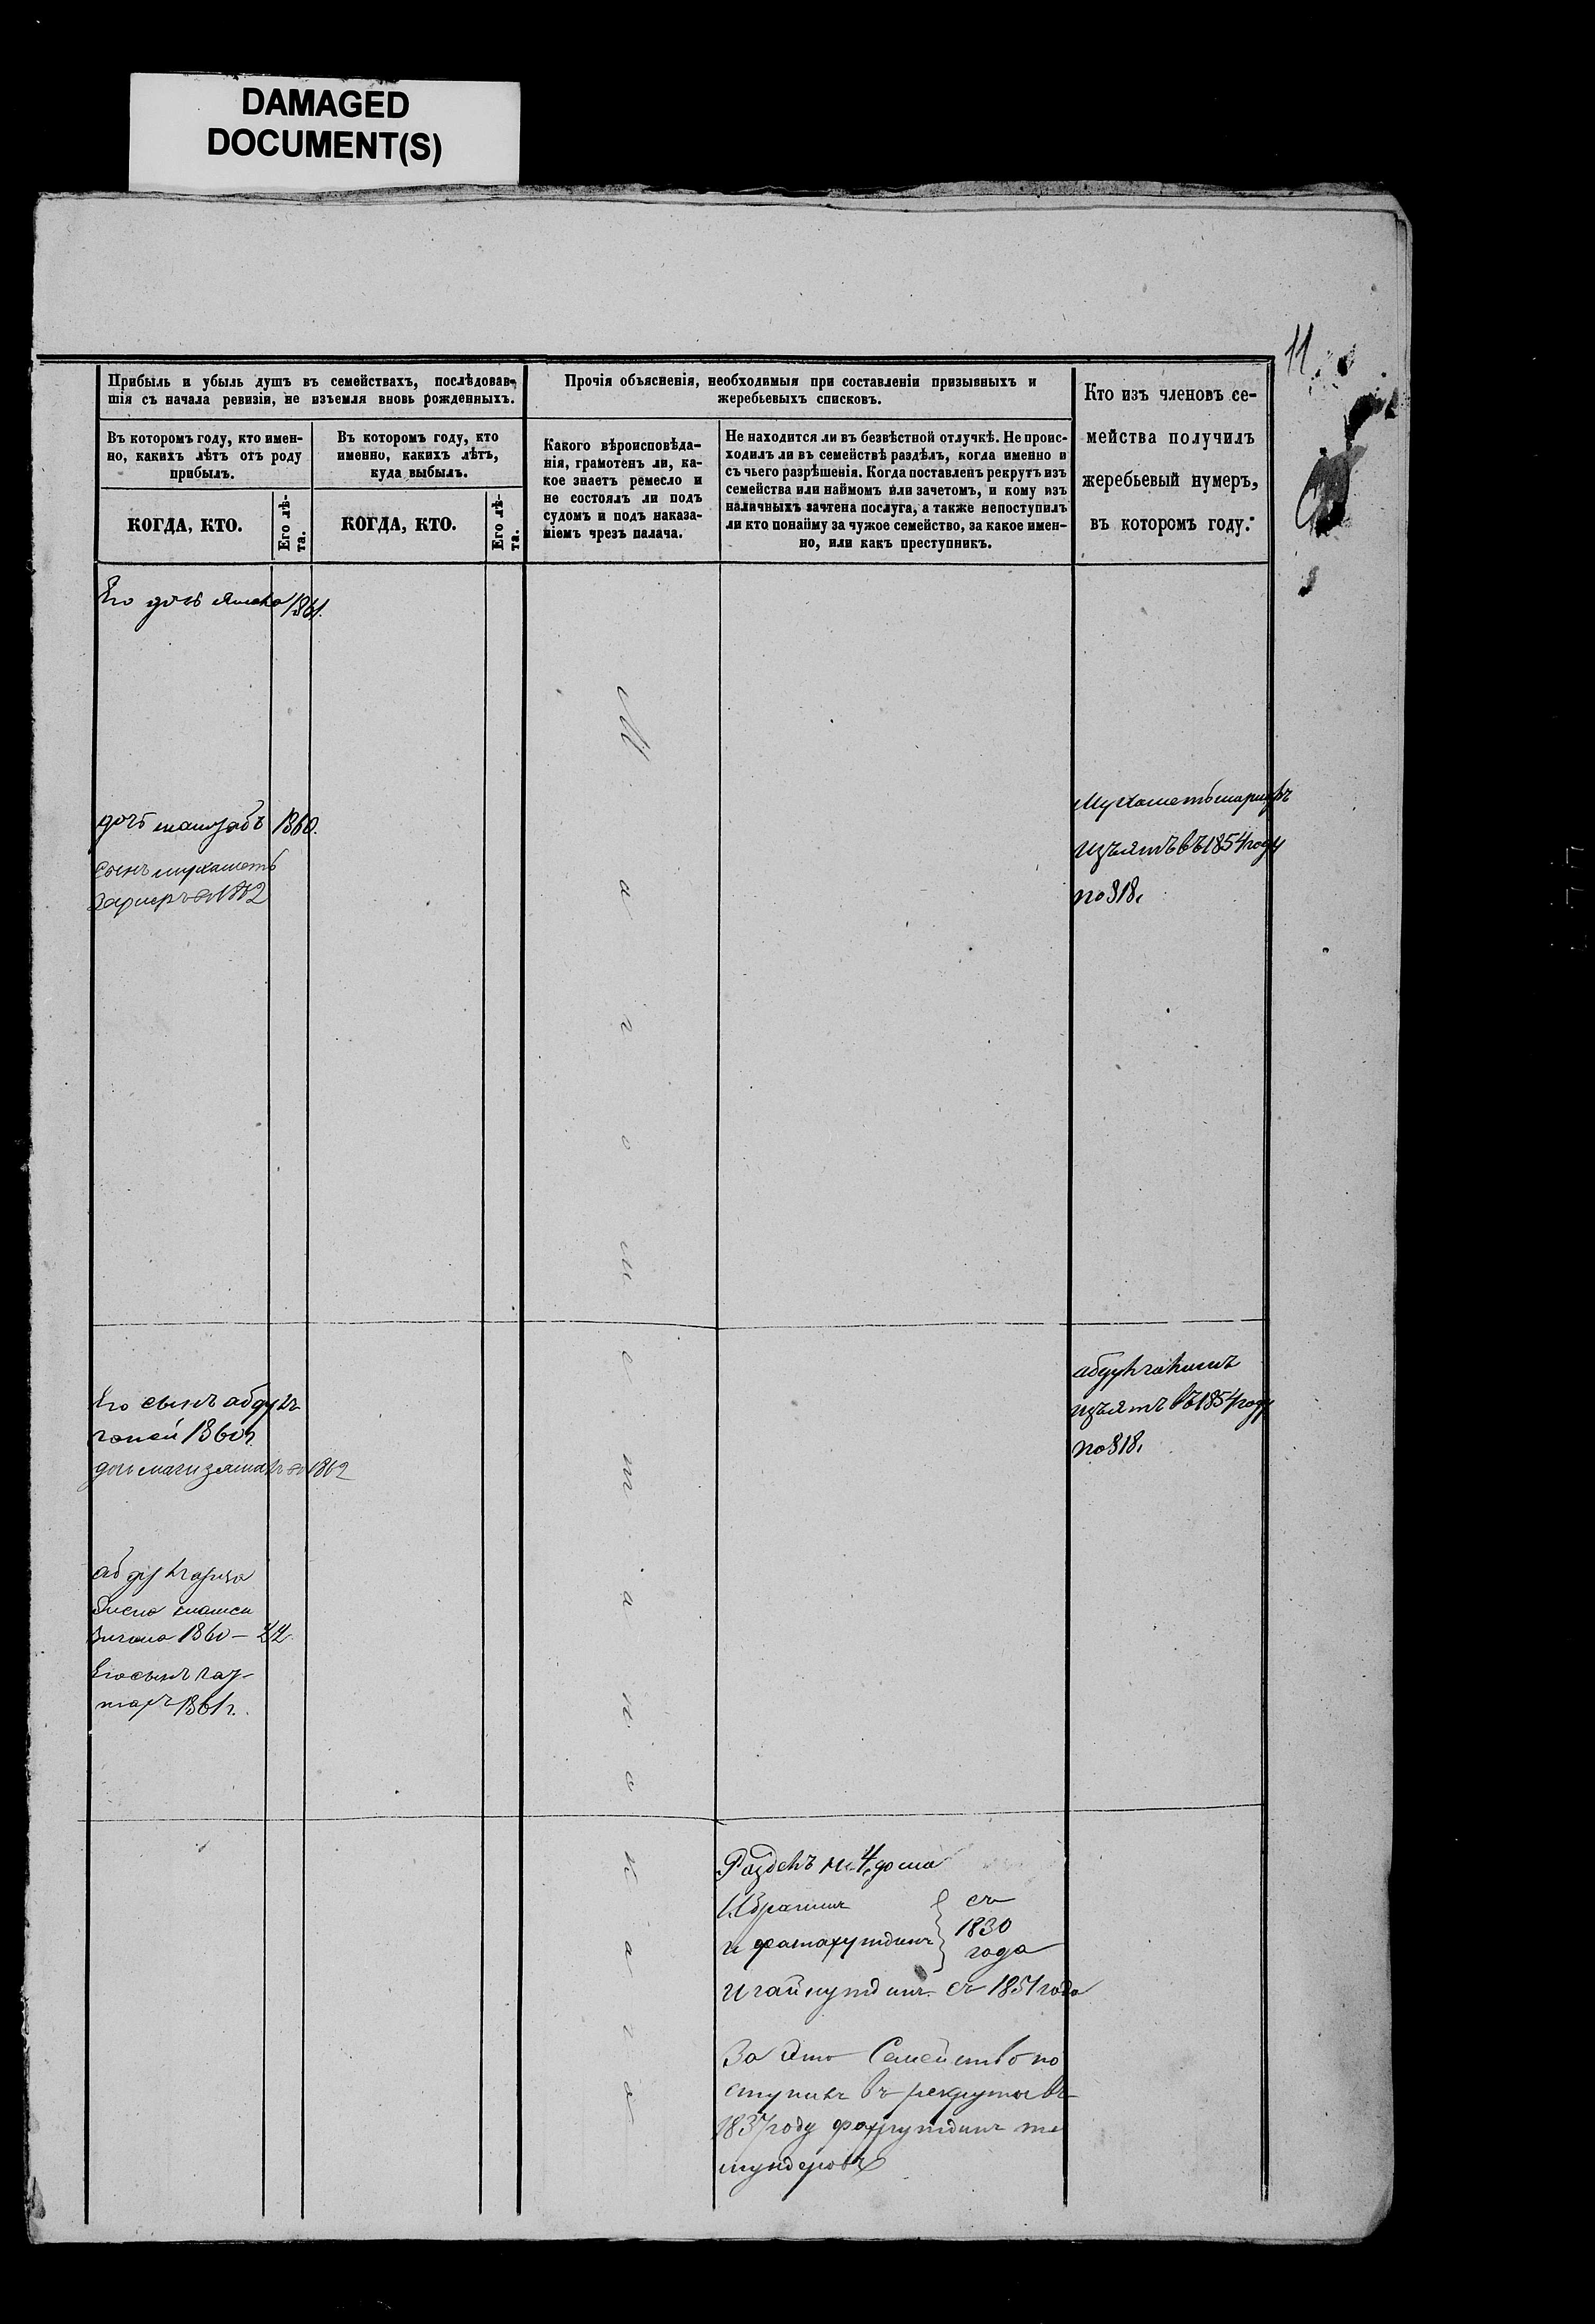 DAMAGED
DOCUMENT(S)
11.
Прибыль и убыль душъ въ семействахъ, послѣдовав-
шія съ начала ревизіи, не изъемля вновь рожденныхъ.
Въ которомъ году, кто имен-
но, какихъ лѣтъ отъ роду
прибылъ.
КОГДА, КТО.
Его лѣ-
та.
Въ которомъ году, кто
именно, какихъ лѣтъ,
куда выбылъ.
КОГДА, КТО.
Его лѣ-
та.
Прочія объясненія, необходимыя при составленіи призывныхъ и
жеребьевыхъ списковъ.
Какого вѣроисповѣда-
нія, грамотенъ ли, ка-
кое знаетъ ремесло и
не состоялъ ли подъ
судомъ и подъ наказа-
ніемъ чрезъ палача.
Не находится ли въ безвѣстной отлучкѣ. Не проис-
ходилъ ли въ семействѣ раздѣлъ, когда именно и
съ чьего разрѣшенія. Когда поставленъ рекрутъ изъ
семейства или наймомъ или зачетомъ, и кому изъ
наличныхъ зачтена послуга, а также непоступилъ
ли кто понайму за чужое семейство, за какое имен-
но, или какъ преступникъ.
Кто изъ членовъ се-
мейства получилъ
жеребьевый нумеръ,
въ которомъ году.
Его дочь 1861.
дочь 1860.
сынъ мухаметь
зариръ 1862
Его сынъ абдулъ
ганей 1860 г.
дочь 1862
1860 — 22.
Его сынъ
1861 г.
Магометанскаго
Раздѣлъ на 4 дома
Ибрагимъ
и фатахутдинъ
съ
1830
года
и гайнутдинъ съ 1851 года
За это Семейство по
ступилъ въ рекруты въ
1837 году фахрутдинъ
Мухаметьшарифъ
изъятъ въ 1854 году
по §18.
абдулгакимъ
изъятъ въ 1854 году
по §18.